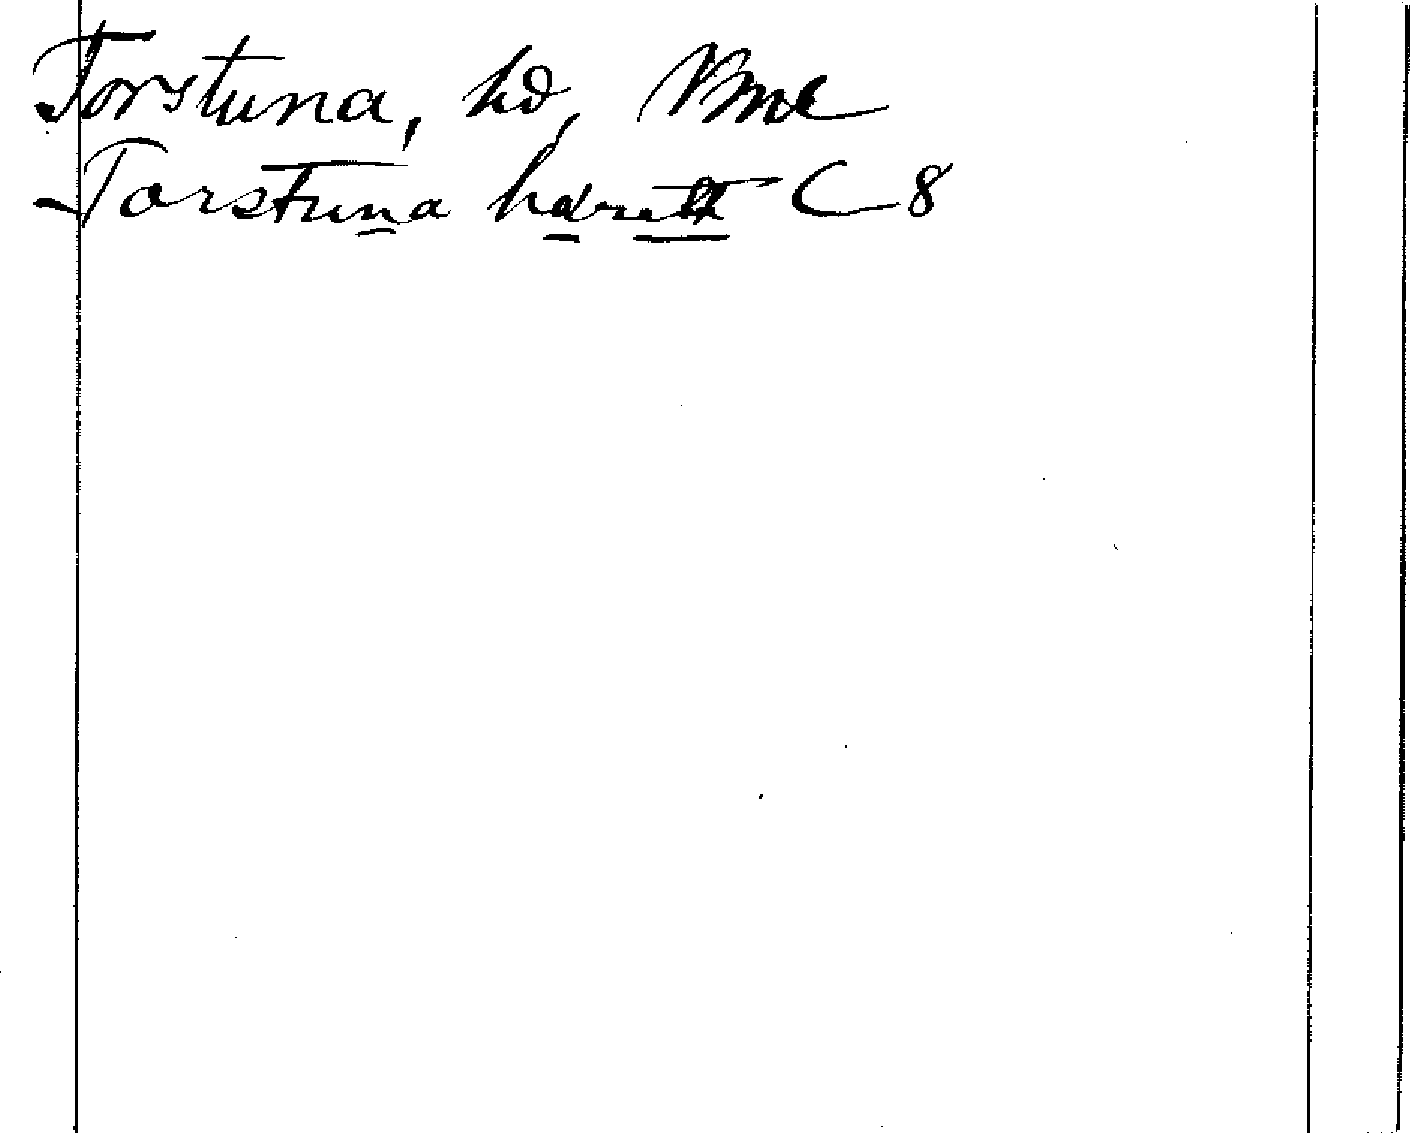 Torstuna, hd,
Torstuna häratt C 8